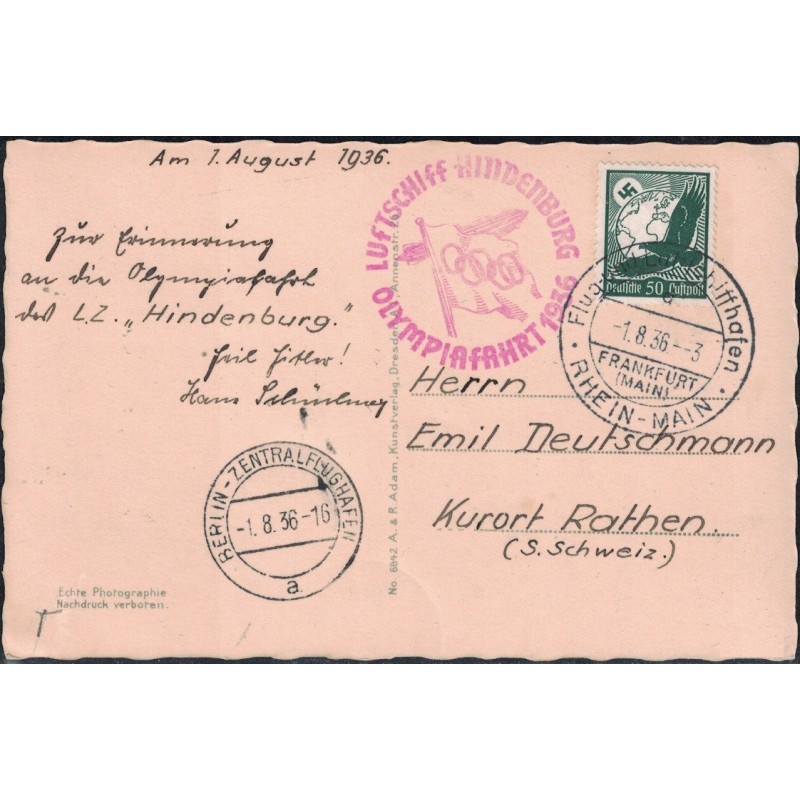 Am 1. August 1936.
Zur Erinnerung
an die Olympiafahrt
des L.Z. „Hindenburg."
Heil Hitler!
Hans
LUFTSCHIFF HINDENBURG
OLYMPIAFAHRT 1936
Deutsche 50 Luftpost
Flug- Luftschiffhafen
-1.8.36--3
FRANKFURT
(MAIN)
RHEIN-MAIN
Herrn
Emil Deutschmann
Kurort Rathen.
(S. Schweiz.)
BERLIN-ZENTRALFLUGHAFEN
-1.8.36-16
a
No. 6842 A. & R. Adam, Kunstverlag, Dresden
Echte Photographie
Nachdruck verboten.